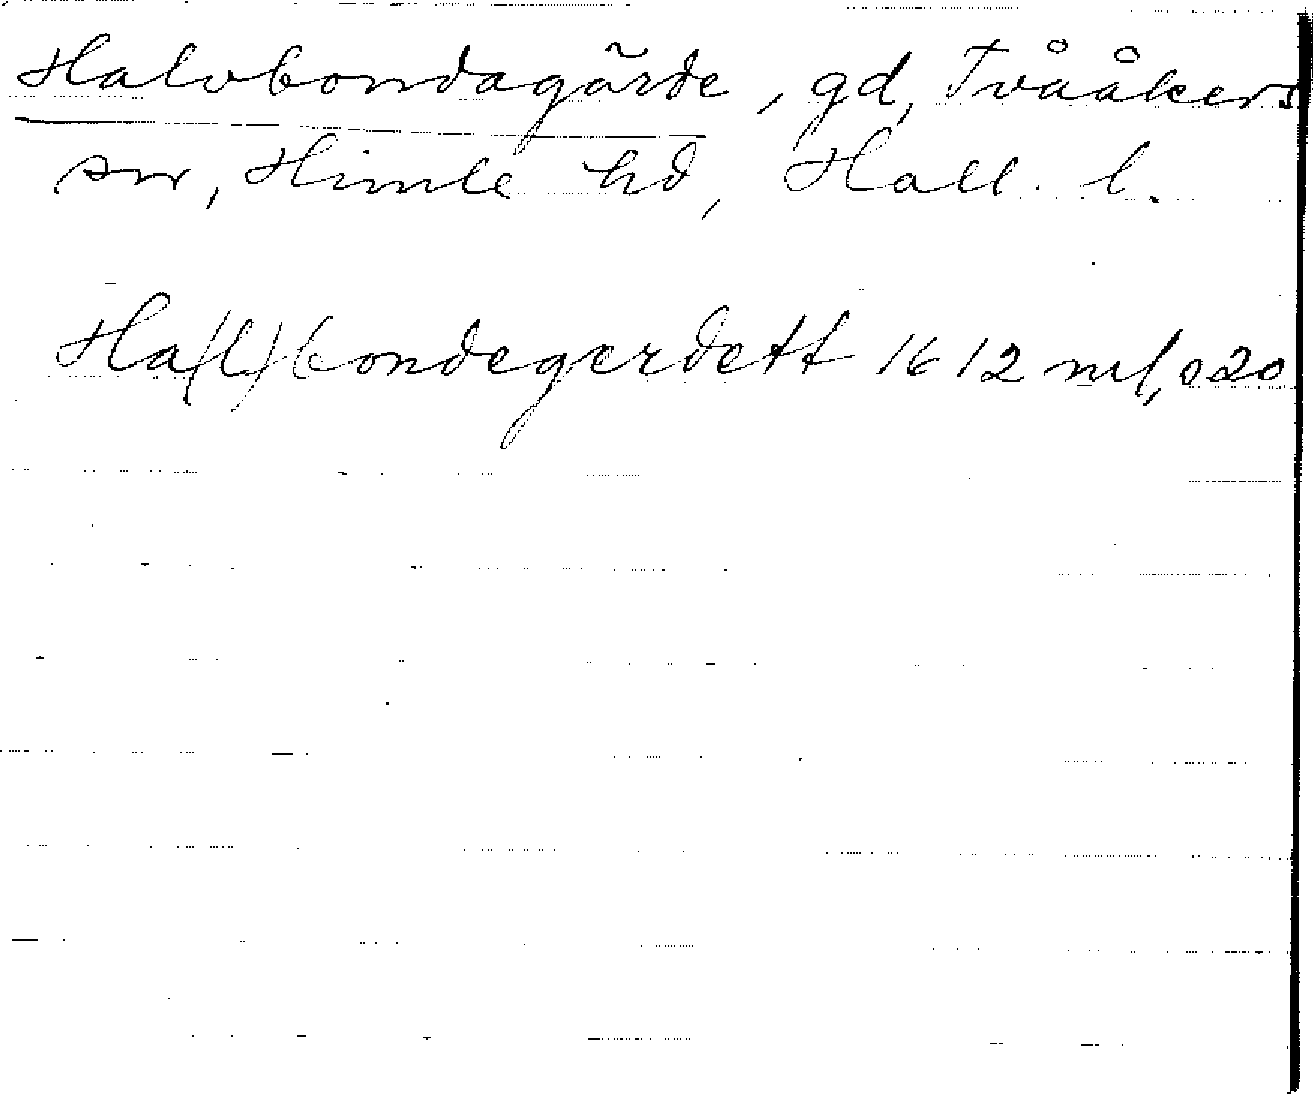 Halvbondagärde, gd, Tvååkers
sn, Himle hd, Hall. l.
Ha(l)bondegerdett 1612 ml, s20